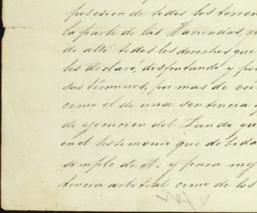 posesion de todos los terren
la parte de las Haciendas, 
de alli todos los derechos que
les declaró, disputando y po
sus terminos, por mas de
como el de una sentencia y
de ejecucion del Laudo qu
en el testimonio que debida
simple de él, y para mej
tencia arbitral como de los